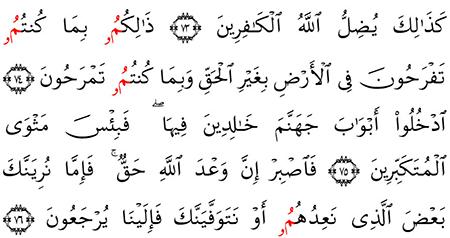 كَذَٰلِكَ يُضِلُّ ٱللَّهُ ٱلْكَٰفِرِينَ ﴿٧٣﴾ ذَٰلِكُمُۥ بِمَا كُنتُمُۥ
تَفْرَحُونَ فِى ٱلْأَرْضِ بِغَيْرِ ٱلْحَقِّ وَبِمَا كُنتُمُۥ تَمْرَحُونَ ﴿٧٤﴾
ٱدْخُلُوٓاْ أَبْوَٰبَ جَهَنَّمَ خَٰلِدِينَ فِيهَا ۖ فَبِئْسَ مَثْوَى
ٱلْمُتَكَبِّرِينَ ﴿٧٥﴾ فَٱصْبِرْ إِنَّ وَعْدَ ٱللَّهِ حَقٌّ ۚ فَإِمَّا نُرِيَنَّكَ
بَعْضَ ٱلَّذِى نَعِدُهُمُۥ أَوْ نَتَوَفَّيَنَّكَ فَإِلَيْنَا يُرْجَعُونَ ﴿٧٦﴾